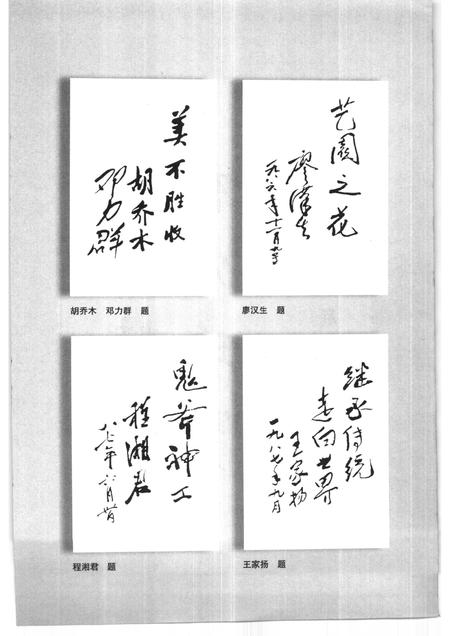 美不胜收
胡乔木
邓力群
胡乔木 邓力群 题
艺园之花
廖汉生
一九八六年十一月九日
廖汉生 题
鬼斧神工
程湘君
八七年六月廿日
程湘君 题
继承传统
走向世界
王家扬
一九八七年九月
王家扬 题